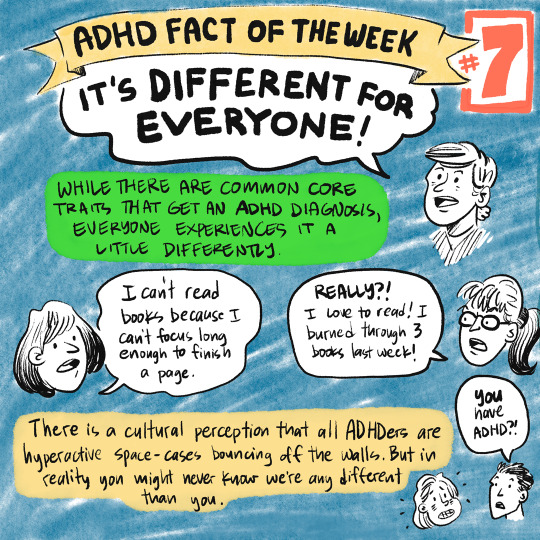 ADHD FACT OF THE WEEK
#7
IT'S DIFFERENT FOR
EVERYONE!
WHILE THERE ARE COMMON CORE
TRAITS THAT GET AN ADHD DIAGNOSIS,
EVERYONE EXPERIENCES IT A
LITTLE DIFFERENTLY.
I can't read
books because I
can't focus long
enough to finish
a page.
REALLY?!
I love to read! I
burned through 3
books last week!
There is a cultural perception that all ADHDers are
hyperactive space-cases bouncing off the walls. But in
reality you might never know we're any different
than you.
YOU
have
ADHD?!